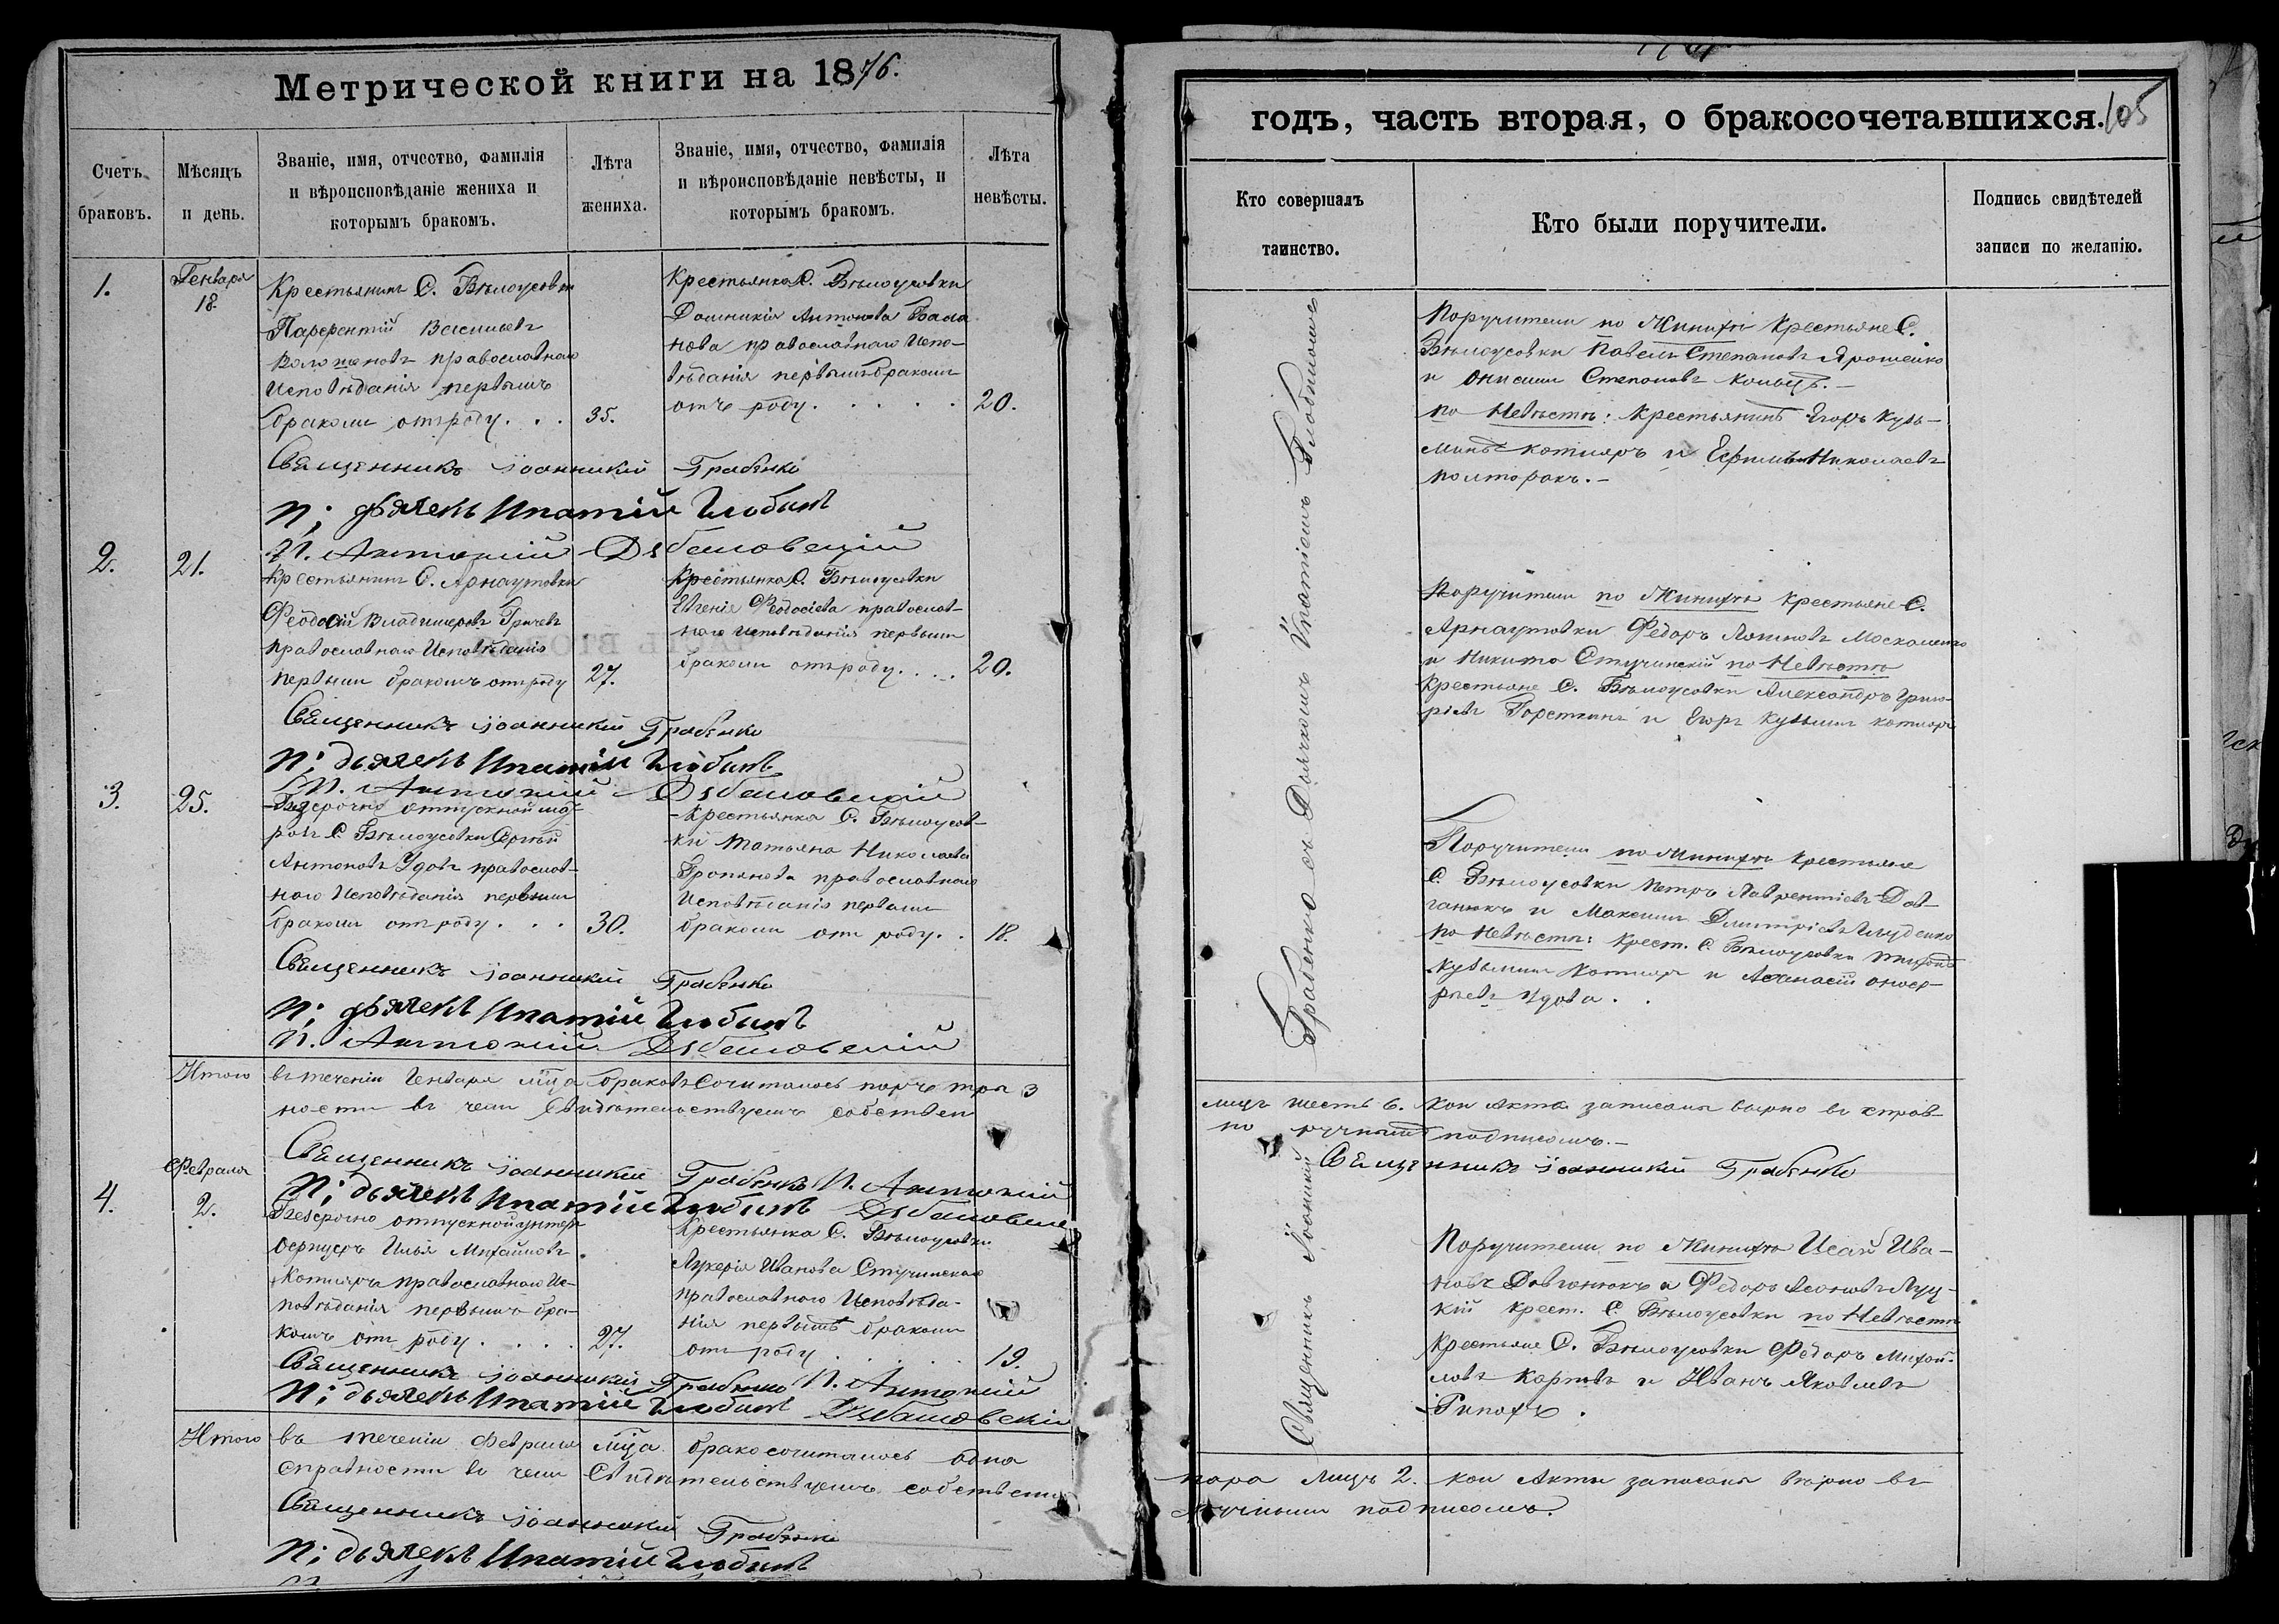 Метрической книги на 1876.
Счетъ браковъ.
Мѣсяцъ и день.
Званіе, имя, отчество, фамилія
и вѣроисповѣданіе жениха и
которымъ бракомъ.
Лѣта жениха.
Званіе, имя, отчество, фамилія
и вѣроисповѣданіе невѣсты, и
которымъ бракомъ.
Лѣта невѣсты.
1.
Генваря
18.
Крестьянинъ С. Бѣлоусовки
Парфентій Васильевъ
православнаго
Исповѣданія первымъ
бракомъ отъ роду . . .
35.
Крестьянка С. Бѣлоусовки
Домникія Антонова
православнаго Испо-
вѣданія первымъ бракомъ
отъ роду . . . . .
20.
Священникъ Іоанникій Грабенко
П; дьячекъ Ипатій
П. Антоній
2.
21.
Крестьянинъ С. Арнаутовки
Феодосій Владимеровъ
православнаго Исповѣданія
первымъ бракомъ отъ роду
27.
Крестьянка С. Бѣлоусовки
Евгенія Феодосіева православ-
наго Исповѣданія первымъ
бракомъ отъ роду . . . .
20.
Священникъ Іоанникій Грабенко
П; дьячекъ Ипатій
П. Антоній
3.
25.
Безсрочно отпускной
С. Бѣлоусовки Сергѣй
Антоновъ Удовъ православ-
наго Исповѣданія первымъ
бракомъ отъ роду . . .
30.
Крестьянка С. Бѣлоусов-
ки Татьяна Николаева
православнаго
Исповѣданія первымъ
бракомъ отъ роду . .
18.
Священникъ Іоанникій Грабенко
П; дьячекъ Ипатій
П. Антоній
Итого въ теченіи Генваря мца браковъ Сочиталось паръ три 3
ности въ чемъ Свидѣтельствуемъ собствен
Священникъ Іоанникій Грабенко П. Антоній
П; дьячекъ Ипатій
4.
Февраля
2.
Безсрочно отпускной унтеръ
офицеръ Илья Михайловъ
Котляръ православнаго Ис-
повѣданія первымъ бра-
комъ отъ роду . . . .
27.
Крестьянка С. Бѣлоусовки
Лукерія Иванова Стучинская
православнаго Исповѣда-
нія первымъ бракомъ
отъ роду . . . . .
19.
Священникъ Іоанникій Грабенко П. Антоній
П; дьячекъ Ипатій
Итого въ теченіи Февраля мца бракосочиталось одна
справности въ чемъ Свидѣтельствуемъ собственно
Священникъ Іоанникій Грабенко
П; дьячекъ Ипатій
годъ, часть вторая, о бракосочетавшихся.
105
Кто совершалъ таинство.
Кто были поручители.
Подпись свидѣтелей записи по желанію.
Священникъ Іоанникій Грабенко съ Дьячкомъ Ипатіемъ
Поручители по Женихѣ Крестьяне С.
Бѣлоусовки Павелъ Степановъ Ярошенко
и Онисимъ Степановъ
По Невѣстѣ: Крестьянинъ Егоръ Кузь-
минъ Котляръ и Ефимъ Николаевъ
Полторакъ. —
Поручители по Женихѣ Крестьяне С.
Арнаутовки Федоръ Москаленко
и Никита Стучинскій по Невѣстѣ
Крестьяне С. Бѣлоусовки Александръ Григо-
рьевъ и Егоръ Кузьминъ Котляръ
Поручители по Женихѣ Крестьяне
С. Бѣлоусовки Петръ Лаврентіевъ Дов-
ганюкъ и Максимъ Дмитріевъ
по Невѣстѣ: Крест. С. Бѣлоусовки
Кузьминъ Котляръ и Афанасій
лицъ шесть 6. Кои Акты записаны вѣрно въ справ-
но ручнымъ подписомъ. —
Священникъ Іоанникій Грабенко
Поручители по Женихѣ Исай Ива-
новъ Довганюкъ и Федоръ Луц-
кій Крест. С. Бѣлоусовки по Невѣстѣ
Крестьяне С. Бѣлоусовки Федоръ Михай-
ловъ Карповъ и Иванъ Яковлевъ
пара лицъ 2. Кои Акты записаны вѣрно въ
ручнымъ подписомъ.